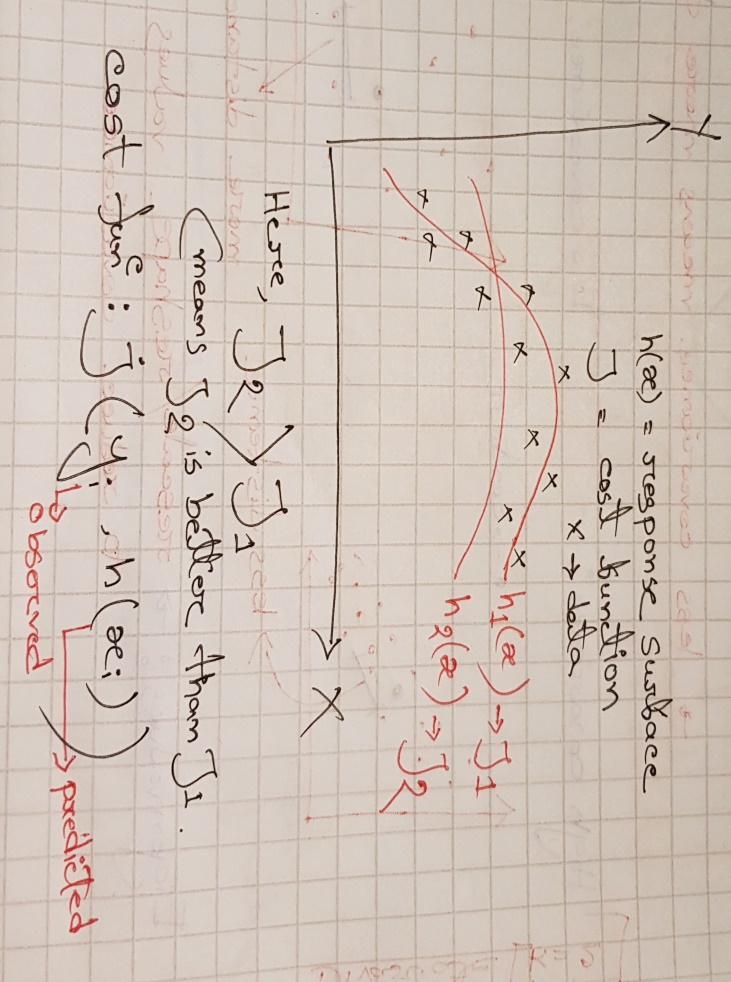 Y
h(x) = response surface
J = cost function
x → data
h1(x) → J1
h2(x) → J2
X
Here, J2 > J1
(means J2 is better than J1.
cost funⁿ: J(yi, h(xi))
observed
predicted